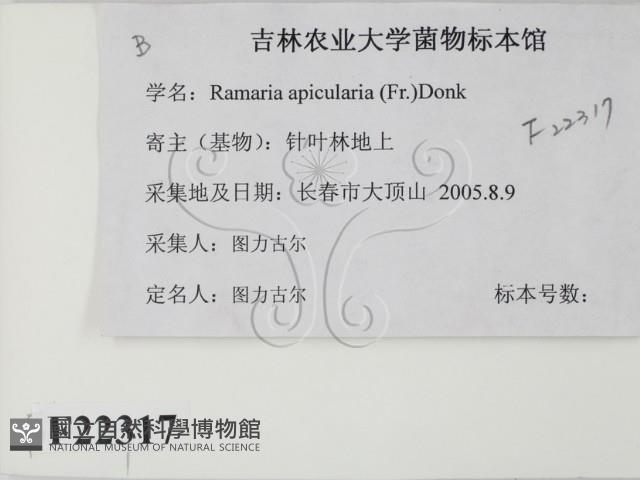 B
吉林农业大学菌物标本馆
学名：Ramaria apicularia (Fr.)Donk
F22317
寄主（基物）：针叶林地上
采集地及日期：长春市大顶山 2005.8.9
采集人：图力古尔
定名人：图力古尔 标本号数：
F22317
國立自然科學博物館
NATIONAL MUSEUM OF NATURAL SCIENCE